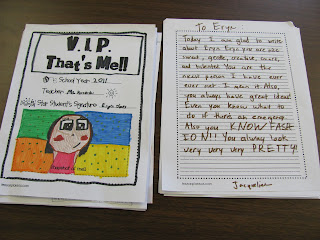 V.I.P.
That's Me!!
School Year 2011
Teacher: Ms.
Star Student's Signature: Eryn
To Eryn
Today I am glad to write
about Eryn. Eryn you are like
sweet, gentle, creative, smart,
and talented. You are the
nicest person I have ever
ever met. I mean it. Also,
you always have great ideas!
Even you know what to
do if there's an emergency.
Also you KNOW FASH
ION!! You always look
very very very PRETTY!
Jacqueline